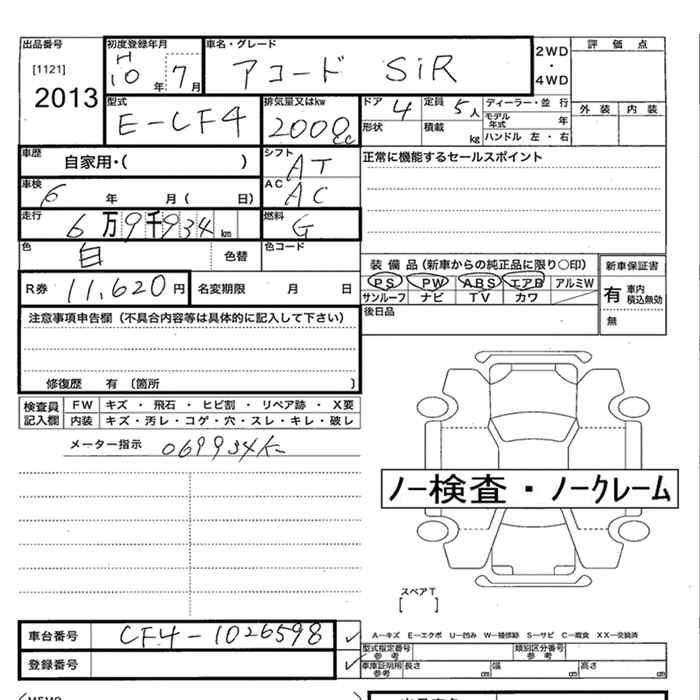 出品番号 初度登録年月 車名・グレード 2WD・4WD 評価点
[1121] H10年7月 アコード SiR
2013 外装 内装
型式 排気量又はkw ドア 4 定員 5人 ディーラー・並行
E-CF4 2000cc 形状 積載 kg モデル年式 年
ハンドル 左・右
車歴 自家用・( ) シフト AT 正常に機能するセールスポイント
車検 6年 月( 日) AC AC
走行 6万9千934km 燃料 G
色 白 色替 色コード
装備品(新車からの純正品に限り○印) 新車保証書
PS PW ABS エアB アルミW 有 車内積込無効
サンルーフ ナビ TV カワ
R券 11,620円 名変期限 月 日 後日品 無
注意事項申告欄(不具合内容等は具体的に記入して下さい)
修復歴 有〔箇所 〕
検査員記入欄 FW キズ・飛石・ヒビ割・リペア跡・X要
内装 キズ・汚レ・コゲ・穴・スレ・キレ・破レ
メーター指示 069934K
ノー検査・ノークレーム
スペアT
[ ]
車台番号 CF4-1026598 A-キズ E-エクボ U-凹み W-補修跡 S-サビ C-腐食 XX-交換済
型式指定番号 参考 類別区分番号 参考
登録番号 車庫証明用参考 長さ cm 幅 cm 高さ cm